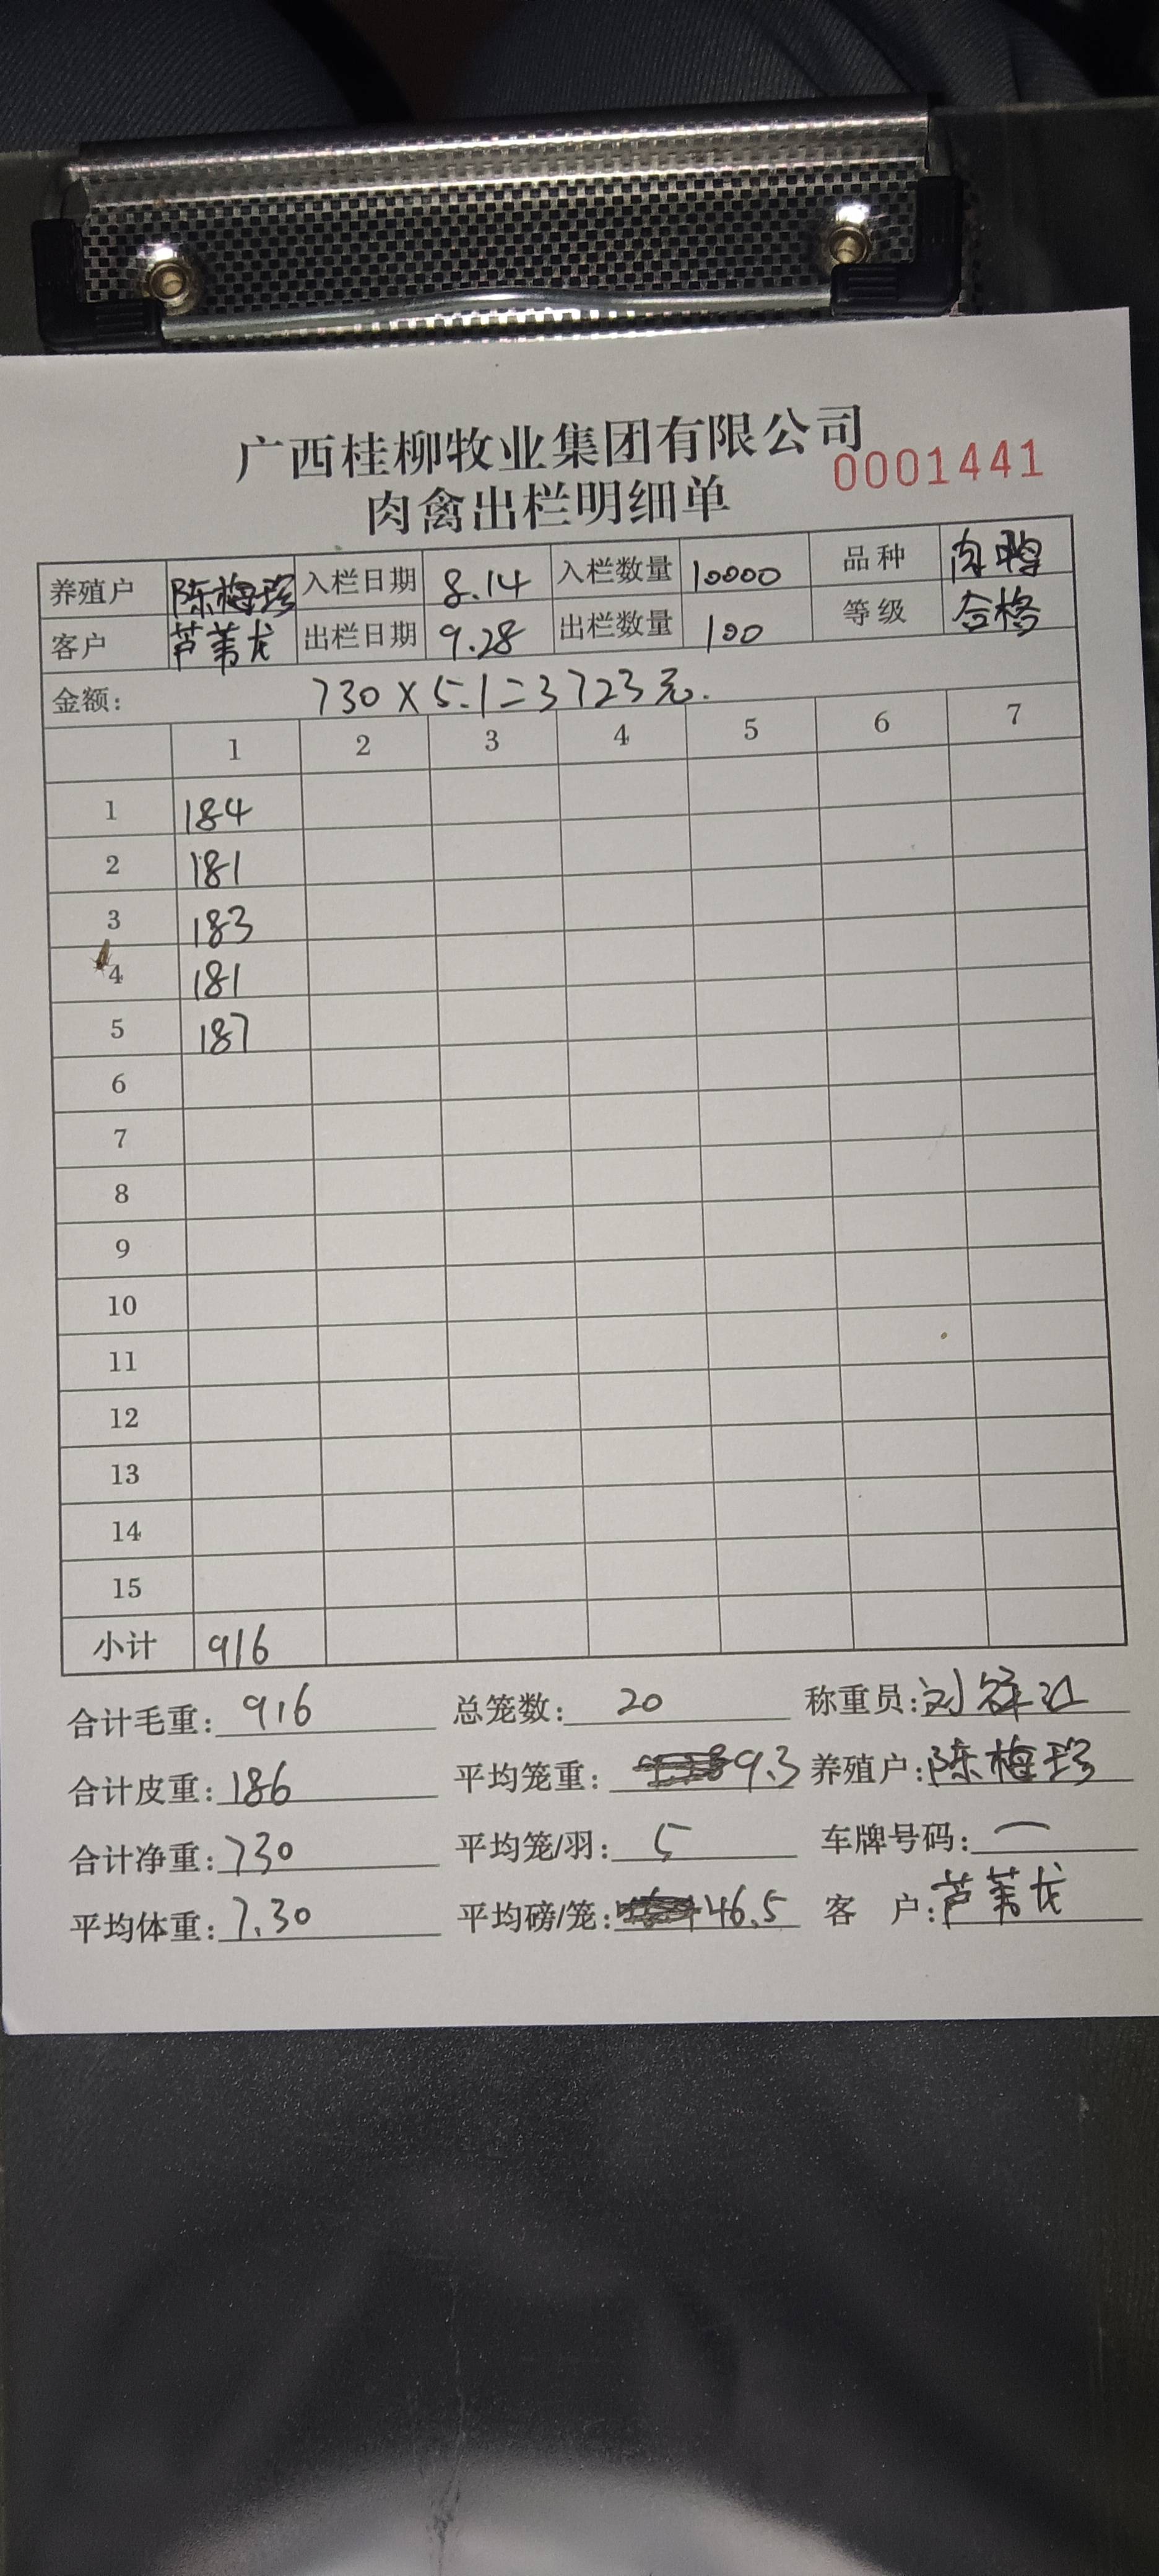 广西桂柳牧业集团有限公司
0001441
肉禽出栏明细单
养殖户 陈梅珍 入栏日期 8.14 入栏数量 10000 品种 肉鸭
客户 芦苇龙 出栏日期 9.28 出栏数量 100 等级 合格
金额: 730×5.1=3723元.
1 2 3 4 5 6 7
1 184
2 181
3 183
4 181
5 187
6
7
8
9
10
11
12
13
14
15
小计 916
合计毛重: 916 总笼数: 20 称重员: 刘江
合计皮重: 186 平均笼重: 9.3 养殖户: 陈梅珍
合计净重: 730 平均笼/羽: 5 车牌号码: 一
平均体重: 7.30 平均磅/笼: 46.5 客户: 芦苇龙